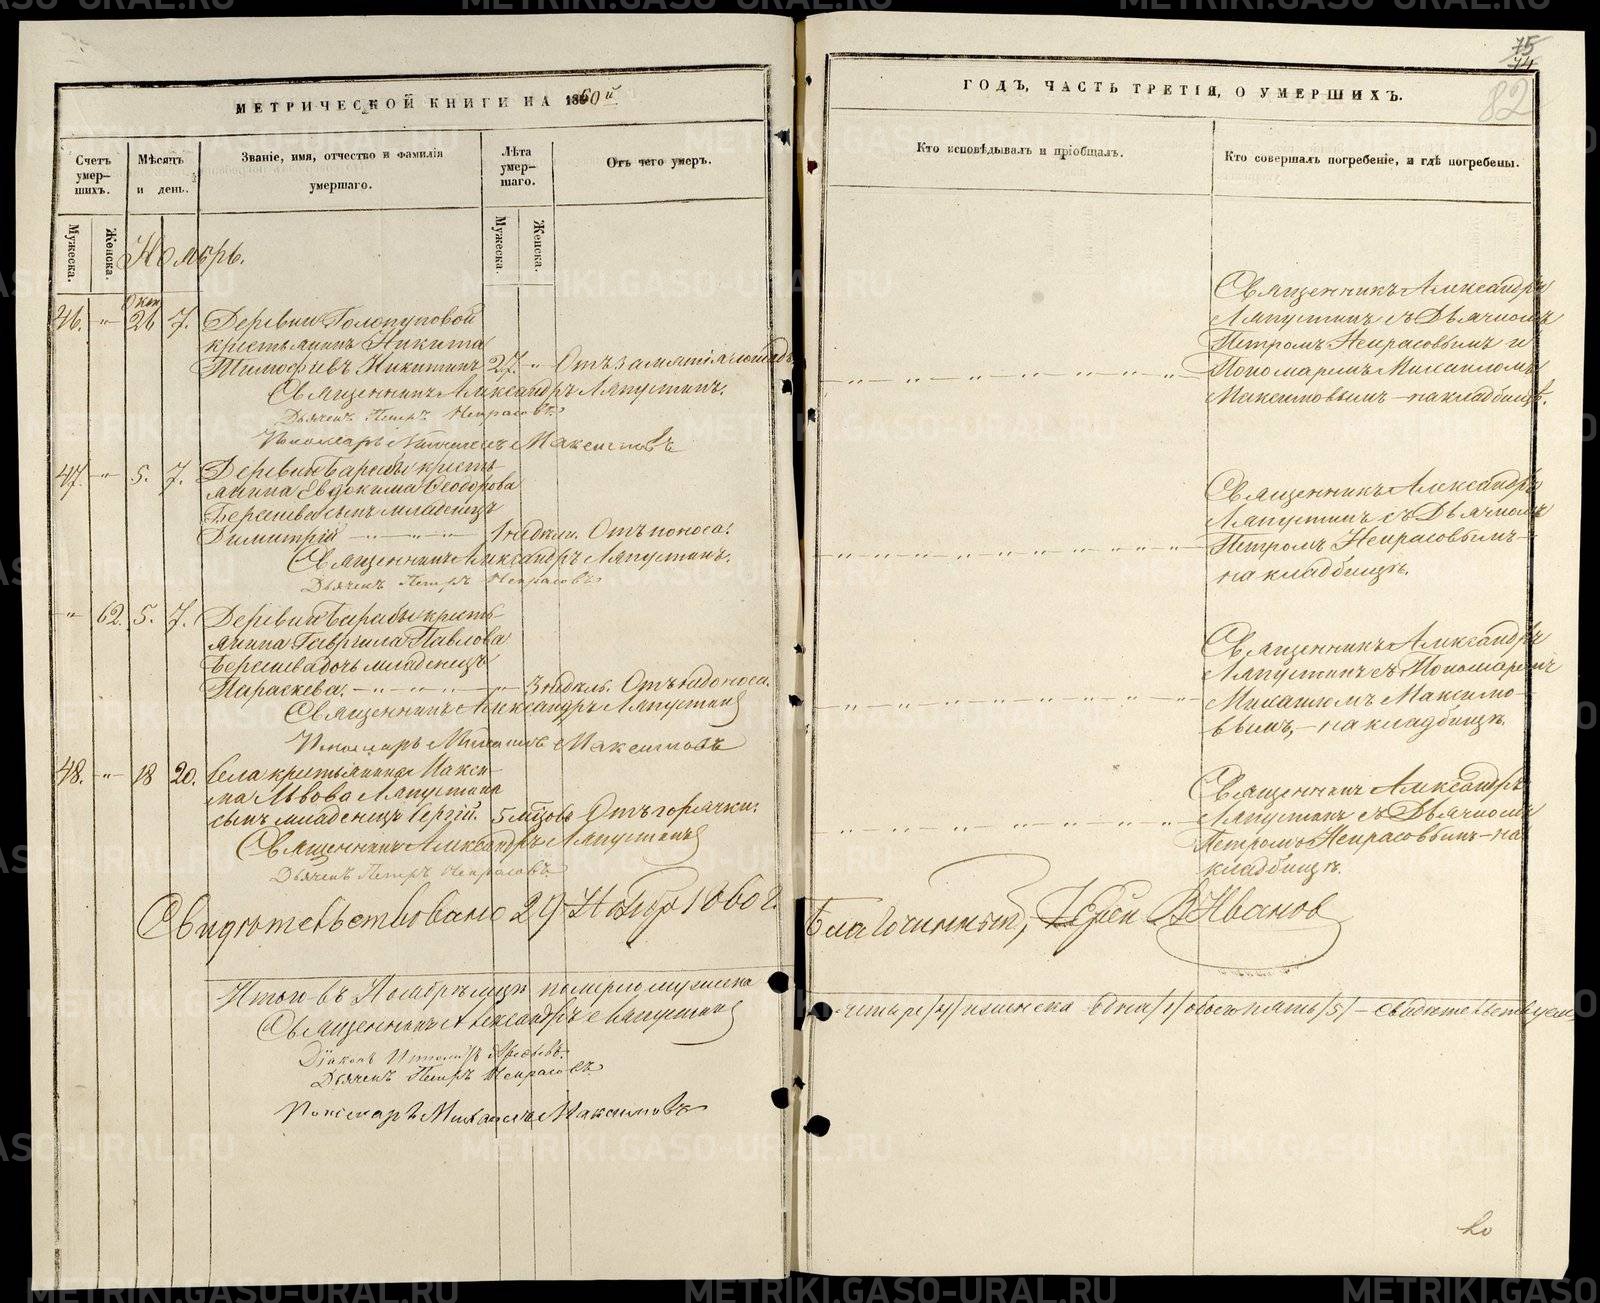 МЕТРИЧЕСКОЙ КНИГИ НА 1860й
Счетъ умер-шихъ.
Мѣсяцъ и день.
Званіе, имя, отчество и фамилія умершаго.
Лѣта умер-шаго.
Отъ чего умеръ.
Мужеска.
Женска.
Мужеска.
Женска.
Ноябрь.
Окт.
46. " 26 7. Деревни Голопуповой
крестьянинъ Никита
Тимофѣевъ Никитинъ 27. "
Священникъ Александръ Ляпустинъ.
Дьячекъ Петръ Некрасовъ.
Пономарь Михаилъ Максимовъ
47. " 5. 7. Деревни Барабы кресть-
янина Евдокима Ѳеодорова
сынъ младенецъ
Димитрій 1 недѣли. Отъ поноса.
Священникъ Александръ Ляпустинъ.
Дьячекъ Петръ Некрасовъ
" 62. 5. 7. Деревни Барабы кресть-
янина Гаврiила Павлова
дочь младенецъ
Параскева. 3 недѣль.
Священникъ Александръ Ляпустинъ
Пономарь Михаилъ Максимовъ
48. " 18 20. Села крестьянина Макси-
ма Львова Ляпустина
сынъ младенецъ Сергій. 5 мѣсяцовъ Отъ горячки.
Священникъ Александръ Ляпустинъ
Дьячекъ Петръ Некрасовъ.
Свидѣтельствовано 29 Ноября 1860 г.
Итого въ Ноябрѣ мѣсяцѣ померло мужеска
Священникъ Александръ Ляпустинъ
Діаконъ
Дьячекъ Петръ Некрасовъ.
Пономарь Михаилъ Максимовъ
75
74
82
ГОДЪ, ЧАСТЬ ТРЕТІЯ, О УМЕРШИХЪ.
Кто исповѣдывалъ и пріобщалъ.
Кто совершалъ погребеніе, и гдѣ погребены.
Священникъ Александръ
Ляпустинъ съ Дьячкомъ
Петромъ Некрасовымъ и
Пономаремъ Михаиломъ
Максимовымъ – на кладбищѣ.
Священникъ Александръ
Ляпустинъ съ Дьячкомъ
Петромъ Некрасовымъ –
на кладбищѣ.
Священникъ Александръ
Ляпустинъ съ Пономаремъ
Михаиломъ Максимо-
вымъ, – на кладбищѣ.
Священникъ Александръ
Ляпустинъ съ Дьячкомъ
Петромъ Некрасовымъ – на
кладбищѣ.
Благочинный, Іерей В Ивановъ
четыре /4/ и женска одна /1/ обоего пять /5/ – свидѣтельствуемъ
METRIKI.GASO-URAL.RU